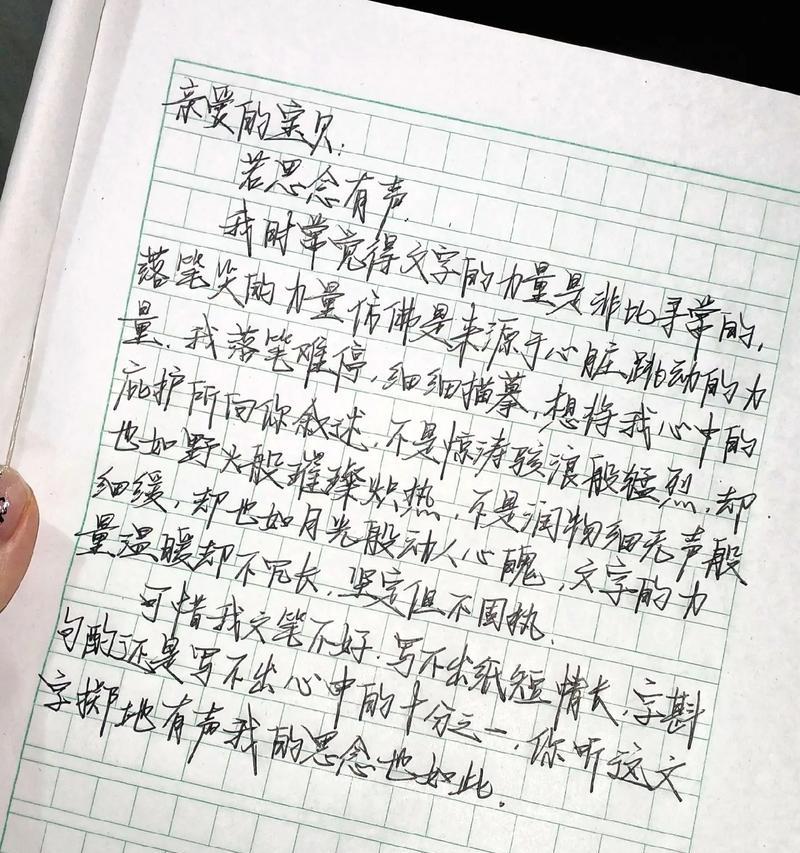 亲爱的宝贝:
若思念有声.
我时常觉得文字的力量是非比寻常的,
落笔的力量仿佛是来源于心脏跳动的力
量.我落笔难停,细细描摹,想将我心中的
庇护所向你叙述,不是惊涛骇浪般猛烈,却
也如野火般璀璨炽热,不是润物细无声般
细缓,却也如月光般动人心魄,文字的力
量温暖却不冗长,坚定但不固执.
可惜我文笔不好.写不出纸短情长,字斟
句酌还是写不出心中的十分之一,你听这文
字掷地有声我的思念也如此.